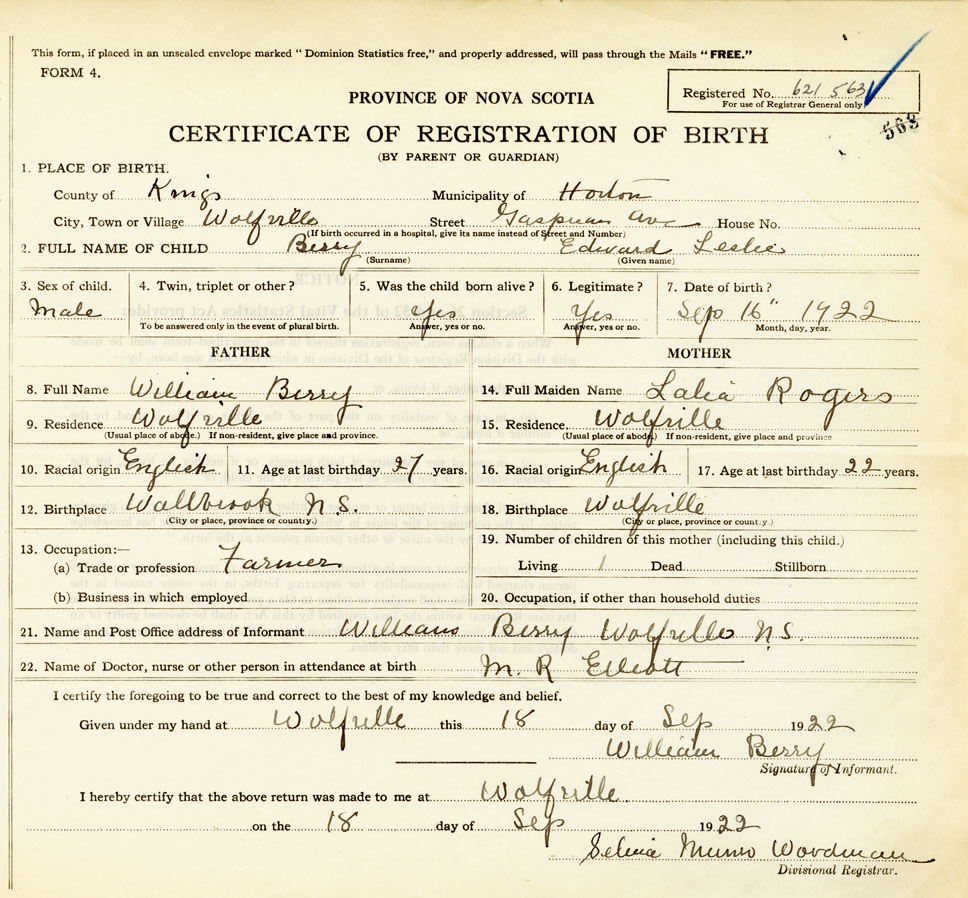 This form, if placed in an unsealed envelope marked "Dominion Statistics free," and properly addressed, will pass through the Mails "FREE."
FORM 4.
Registered No. 621 563
For use of Registrar General only
568
PROVINCE OF NOVA SCOTIA
CERTIFICATE OF REGISTRATION OF BIRTH
(BY PARENT OR GUARDIAN)
1. PLACE OF BIRTH.
County of Kings Municipality of Horton
City, Town or Village Wolfville Street Gaspereau Ave House No.
(If birth occurred in a hospital, give its name instead of Street and Number)
2. FULL NAME OF CHILD Berry Edward Leslie
(Surname) (Given name)
3. Sex of child. 4. Twin, triplet or other? 5. Was the child born alive? 6. Legitimate? 7. Date of birth?
Male Yes Yes Sep 16" 1922
To be answered only in the event of plural birth. Answer, yes or no. Answer, yes or no. Month, day, year.
FATHER MOTHER
8. Full Name William Berry 14. Full Maiden Name Lalia Rogers
9. Residence Wolfville 15. Residence. Wolfville
(Usual place of abode.) If non-resident, give place and province. (Usual place of abode) If non-resident, give place and province
10. Racial origin English 11. Age at last birthday 27 years. 16. Racial origin English 17. Age at last birthday 22 years.
12. Birthplace Wallbrook N.S. 18. Birthplace Wolfville
(City or place, province or country.) (City or place, province or country.)
13. Occupation:— 19. Number of children of this mother (including this child.)
(a) Trade or profession Farmer Living 1 Dead Stillborn
(b) Business in which employed 20. Occupation, if other than household duties
21. Name and Post Office address of Informant William Berry Wolfville N.S.
22. Name of Doctor, nurse or other person in attendance at birth M. R Elliott
I certify the foregoing to be true and correct to the best of my knowledge and belief.
Given under my hand at Wolfville this 18 day of Sep 1922
William Berry
Signature of Informant.
I hereby certify that the above return was made to me at Wolfville
on the 18 day of Sep 1922
Selina Munro Woodman
Divisional Registrar.